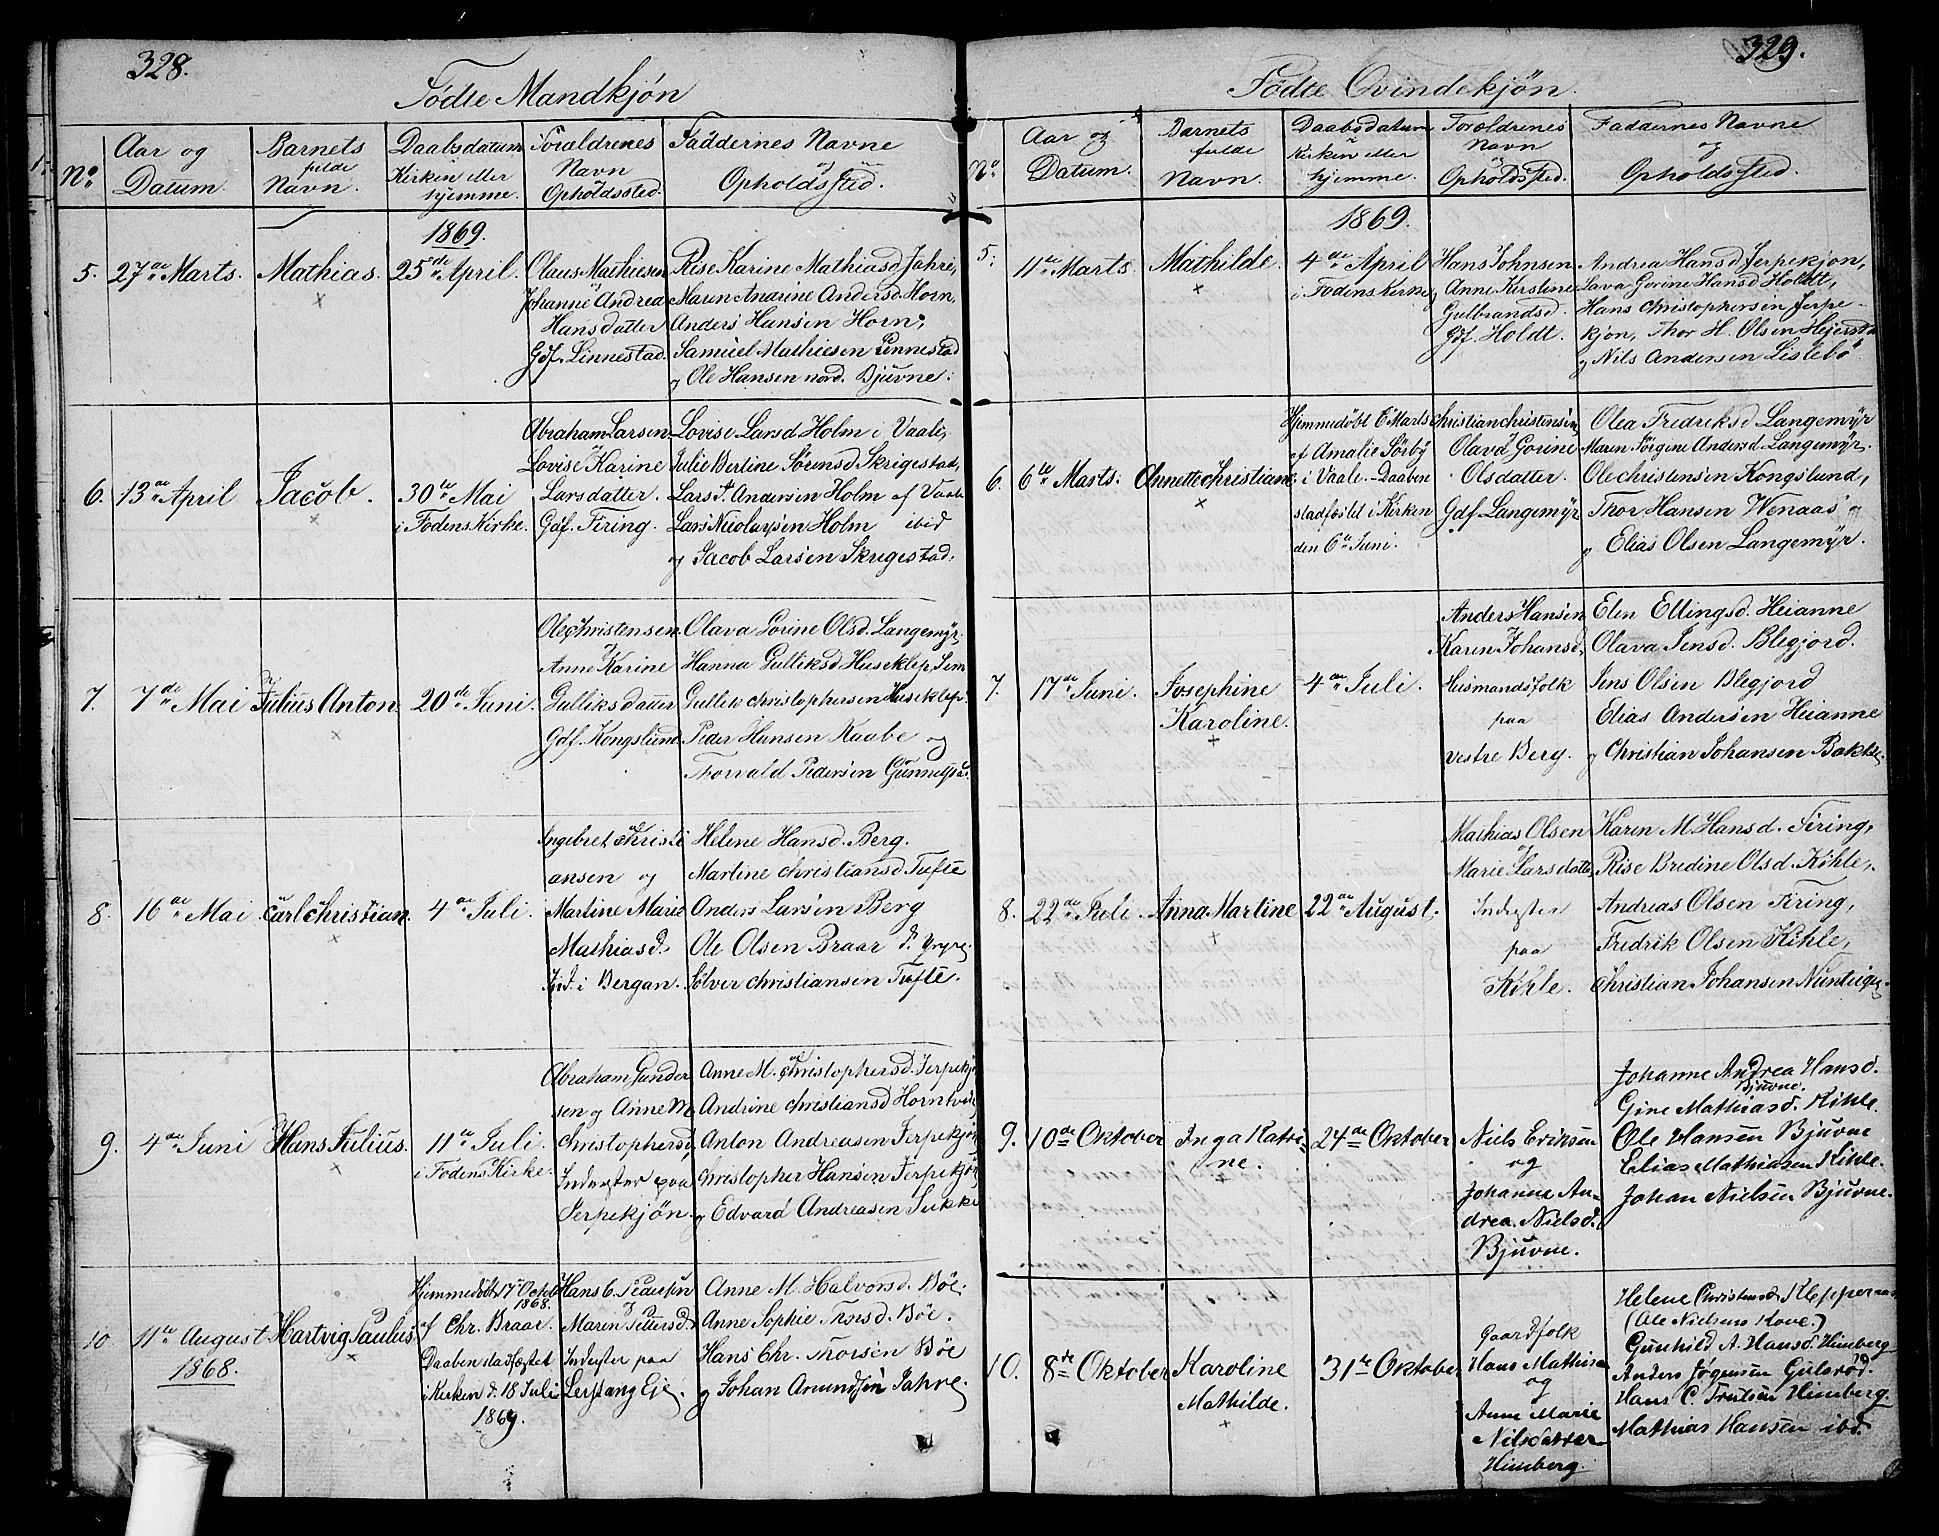 328.
Födte Mandkjön
No.
Aar og
Datum.
Barnets
fulde
Navn.
Daabsdatum
i Kirken eller
hjemme.
Forældrenes
Navn
og
Opholdssted.
Faddernes Navne
og
Opholdssted.
1869.
5.
27de Marts.
Mathias.
25de April.
Olaus Mathiesen
og
Johanne Andrea
Hansdatter
Gdf. Linnestad.
Rise Karine Mathiasd. Jahre,
Maren Anarine Andersd. Horn,
Anders Hansen Horn,
Samuel Mathiesen Linnestad
og Ole Hansen nord. Bjuvne.
6.
13de April
Jacob.
30te Mai
i Fodens Kirke.
Abraham Larsen
og
Lovise Karine
Larsdatter.
Gdf. Firing.
Lovise Larsd Holm i Vaale,
Julie Bertine Sörensd Skrigestad,
Lars A. Andersen Holm af Vaale
Lars Nicolaysen Holm ibid
og Jacob Larsen Skrigestad.
7.
7de Mai
Julius Anton.
20de Juni.
Ole Christensen
og
Anne Karine
Gulliksdatter
Gdf. Kongslund
Olava Gorine Olsd. Langemyr.
Hanna Gulliksd Huseklep Sem
Gullik Christophersen Huseklep.
Peder Hansen Raabe og
Thorvald Pedersen Gunnelsrud.
8.
16de Mai
Carl Christian.
4de Juli.
Ingebret Christi
ansen og
Martine Marie
Mathiasd.
Ind. i Bergan.
Helene Hansd. Berg.
Martine Christiansd Tufte
Anders Larsen Berg
Ole Olsen Braar d. yngre.
Sölver Christiansen Tufte.
9.
4de Juni
Hans Julius.
11te Juli.
i Fodens Kirke.
Abraham Gunder
sen og Anne M.
Christophersd.
Inderster paa
Jerpekjön.
Anne M. Christophersd. Jerpekjön
Andrine Christiansd Horntvedt
Anton Andreasen Jerpekjön
Christopher Hansen Jerpekjön
og Edvard Andreasen Sukke
10.
11te August
1868.
Hartvig Paulus
Hjemmedöbt 17 Octob
1868.
af Chr. Braar.
Daaben stadfæstet
i Kirken d. 18 Juli
1869.
Hans C. Paulsen
og
Maren Pettersd.
Inderster paa
Lerstang Eje.
Anne M. Halvorsd. Böe.
Anne Sophie Thorsd. Böe.
Hans Chr. Thorsen Böe
og Johan Amundsen Jahre.
329.
Födte Qvindekjön.
No.
Aar og
Datum.
Barnets
fulde
Navn.
Daabsdatum
i
Kirken eller
hjemme.
Forældrenes
Navn
og
Opholdssted.
Faddernes Navne
og
Opholdssted.
1869.
5.
11te Marts.
Mathilde.
4de April
i Fodens Kirke
Hans Johnsen
og Anne Kirstine
Gulbrandsd.
Gdf. Holdt.
Andrea Hansd Jerpekjön,
Lava Gorine Hansd Holdt,
Hans Christophersen Jerpe-
kjön, Thor H. Olsen Hejerstad
og Nils Andersen Lislebö
6.
6te Marts.
Annette Christiane
Hjemmedöbt 6 Marts
af Amalie Sösby
i Vaale. - Daaben
stadfæstet i Kirken
den 6te Juni.
Christian Christensen
og
Olava Gorine
Olsdatter.
Gdf. Langemyr
Olea Fredriksd Langemyr
Maren Sörgine Andersd Langemyr.
Ole Christensen Kongslund,
Thor Hansen Wenaas
og Elias Olsen Langemyr.
7.
17de Juni.
Josephine
Karoline.
4de Juli.
Anders Hansen
Karen Johansd,
Husmandsfolk
paa
vestre Berg.
Elen Ellingsd. Heianne
Olava Jensd. Blegjord.
Jens Olsen Blegjord
Elias Andersen Heianne
og Christian Johansen Bakke.
8.
22de Juli.
Anna Martine
22de August.
Mathias Olsen
og
Marie Larsdatter
Inderster
paa
Kihle.
Karen M. Hansd. Firing,
Rise Bredine Olsd. Kihle,
Andreas Olsen Firing,
Fredrik Olsen Kihle,
Christian Johansen
9.
10de Oktober
Inga Katri-
ne.
24de Oktober
Niels Eriksen
og
Johanne An-
drea Nielsd.
Bjuvne.
Johanne Andrea Hansd.
Bjuvne.
Gine Mathiasd. Kihle.
Ole Hansen Bjuvne
Elias Mathiasen Kihle.
Johan Nielsen Bjuvne.
10.
8de Oktober
Karoline
Mathilde.
31te Oktober
Gaardfolk
Hans Mathisen
og
Anne Marie
Nilsdatter
Himberg.
Helene Christensd. Kleppenaas
(Ole Nielsens Kone.)
Gunhild A. Hansd. Himberg
Anders Jörgensen Gulsröd.
Hans C. Trulsen Himberg.
Mathias Hansen ibd.